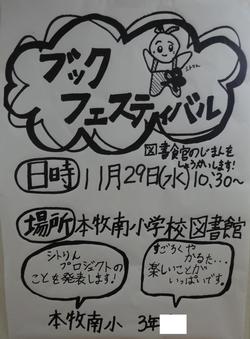 ブック
シトりん
フェスティバル
図書館のじまんを
しょうかいします!
日時 11月29日(水)10:30~
場所 本牧南小学校図書館
シトりん
プロジェクトの
ことを発表します!
すごろくや
かるた…
楽しいことが
いっぱいです。
本牧南小 3年